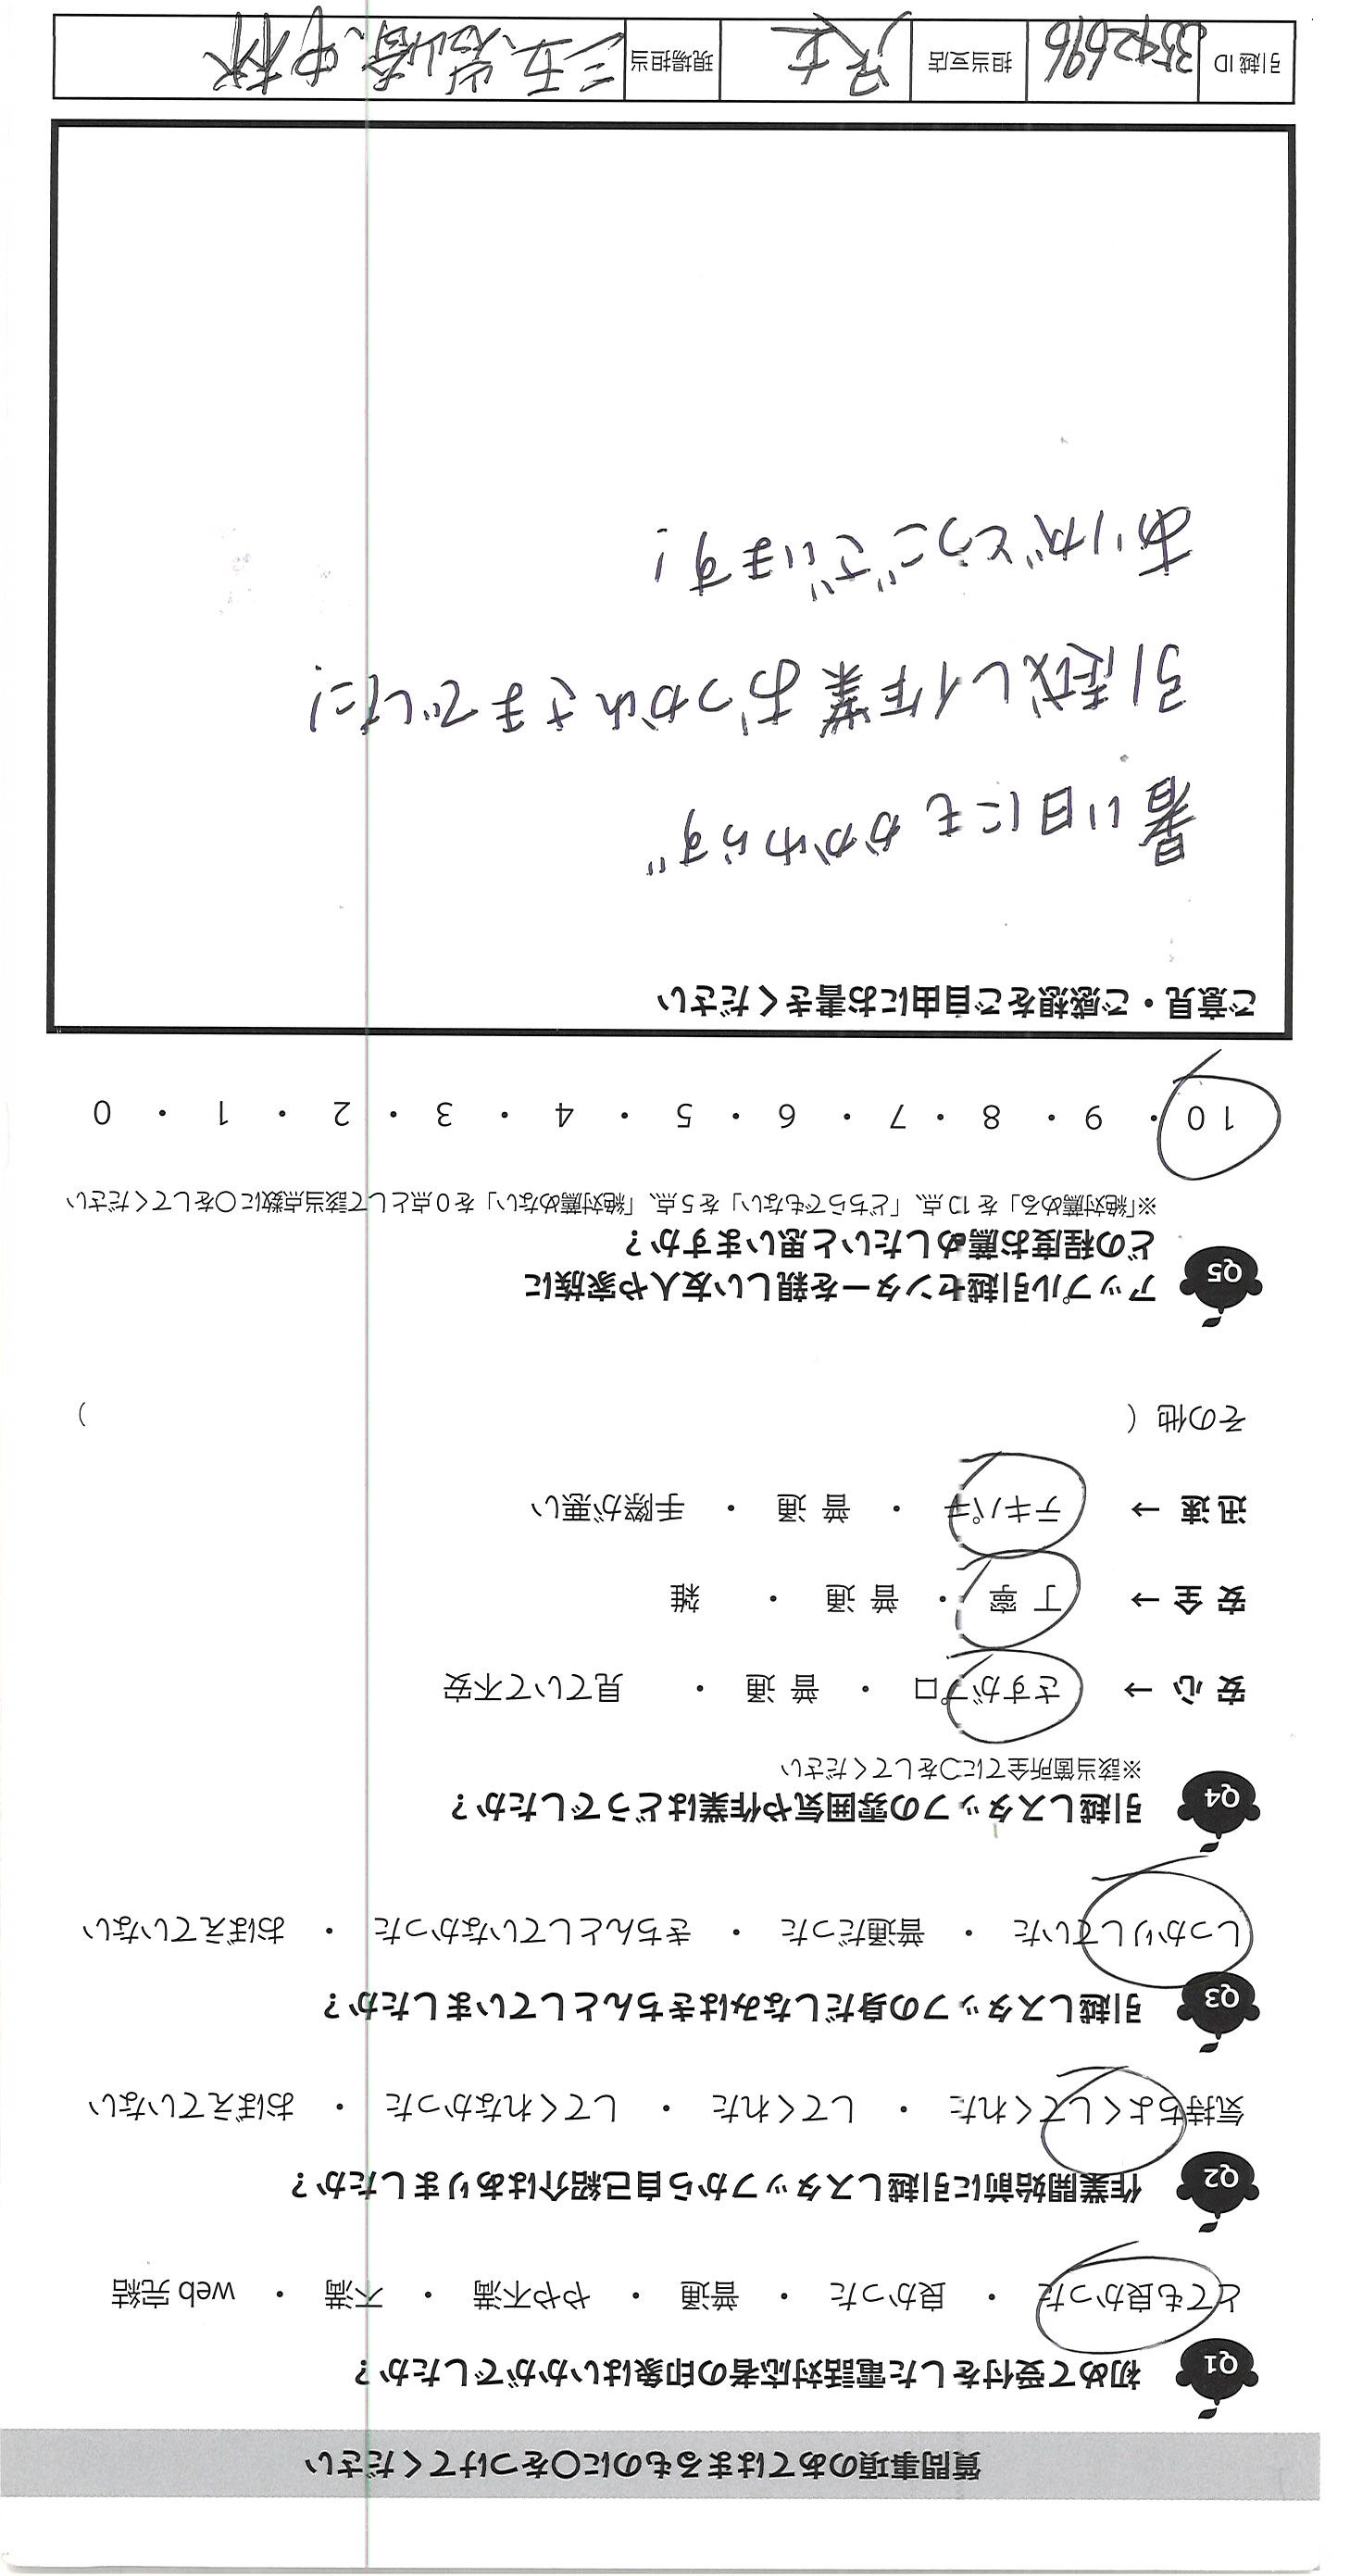 質問事項のあてはまるものに〇をつけてください
Q1 初めて受付をした電話対応者の印象はいかがでしたか？
とても良かった ・ 良かった ・ 普通 ・ やや不満 ・ 不満 ・ web 完結
Q2 作業開始前に引越しスタッフから自己紹介はありましたか？
気持ちよくしてくれた ・ してくれた ・ してくれなかった ・ おぼえていない
Q3 引越しスタッフの身だしなみはきちんとしていましたか？
しっかりしていた ・ 普通だった ・ きちんとしていなかった ・ おぼえていない
Q4 引越しスタッフの雰囲気や作業はどうでしたか？
※該当箇所全てに〇をしてください
安心 → さすがプロ ・ 普通 ・ 見ていて不安
安全 → 丁寧 ・ 普通 ・ 雑
迅速 → テキパキ ・ 普通 ・ 手際が悪い
その他 （ ）
Q5 アップル引越センターを親しい友人や家族に
どの程度お薦めしたいと思いますか？
※「絶対薦める」を 10 点、「どちらでもない」を 5 点、「絶対薦めない」を 0 点として該当点数に〇をしてください
10 ・ 9 ・ 8 ・ 7 ・ 6 ・ 5 ・ 4 ・ 3 ・ 2 ・ 1 ・ 0
ご意見・ご感想をご自由にお書きください
暑い日にもかかわらず
引越し作業おつかれさまでした！
ありがとうございます！
引越 ID 3542696 担当支店 現場担当 三五、岩崎、中林